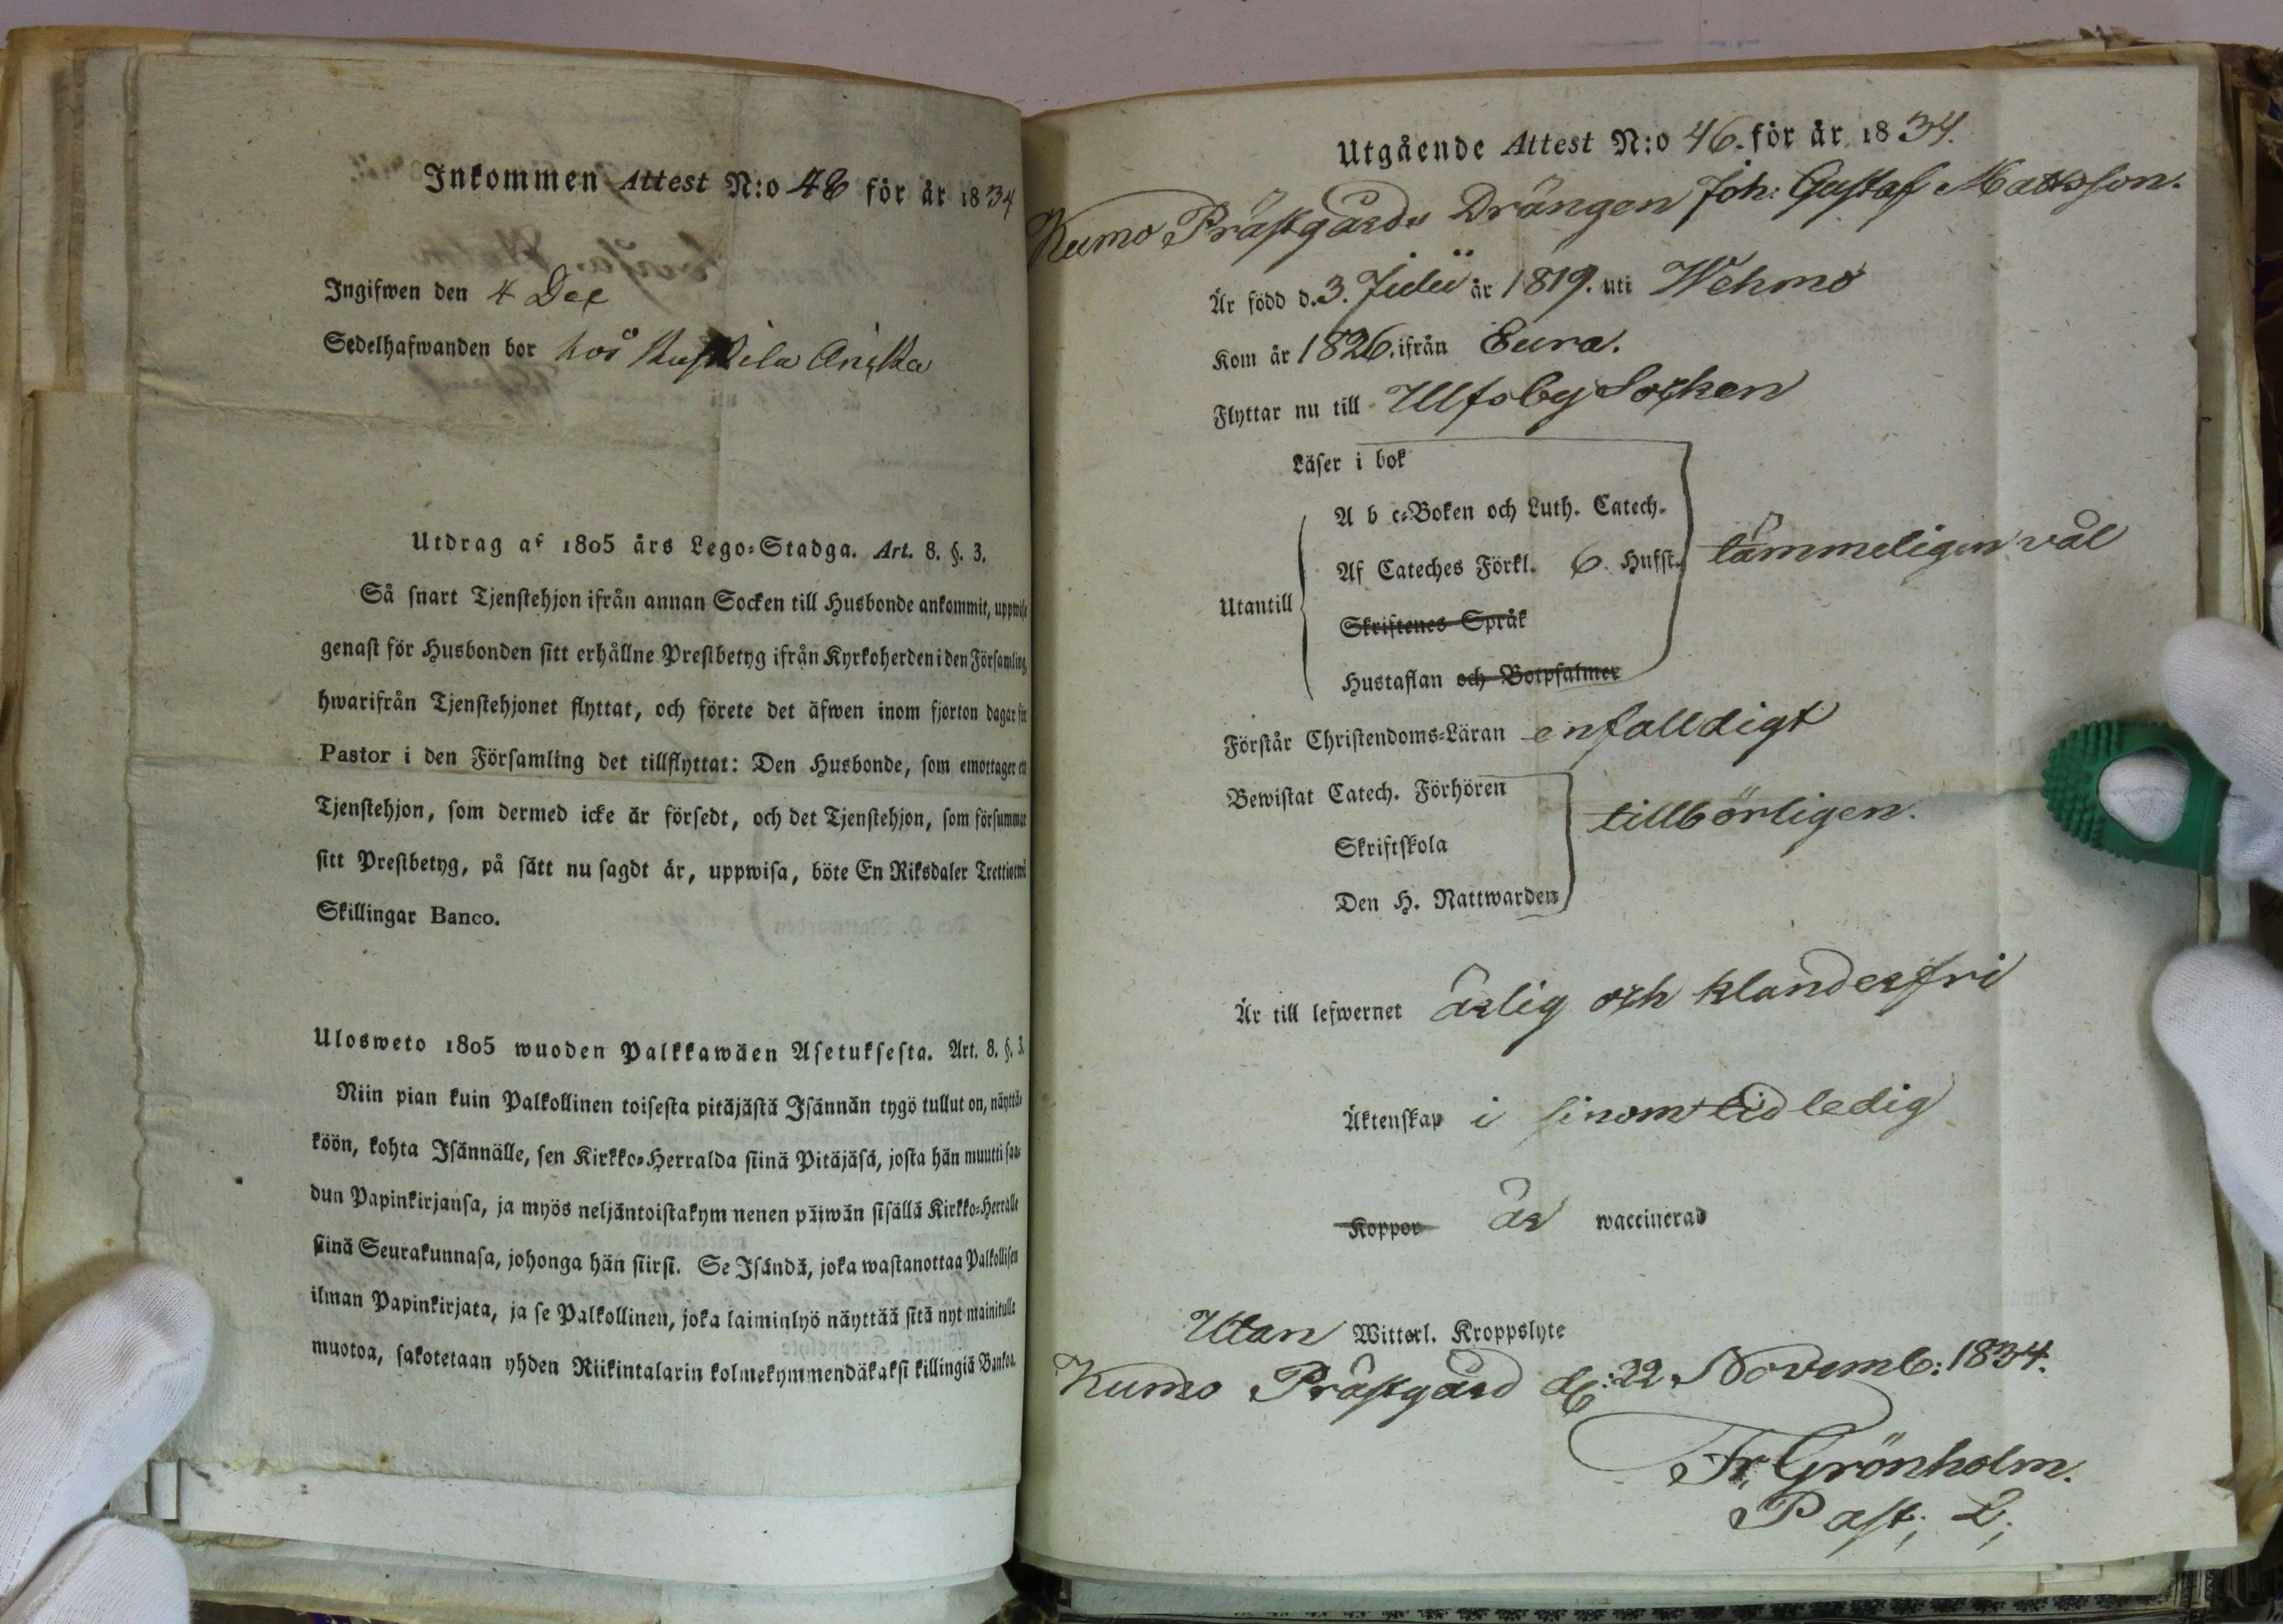 Inkommen Attest N:o 48 för år 1834
Ingifwen den 4 Dec
Sedelhafwanden bor hos
Utdrag af 1805 års Lego-Stadga. Art. 8. §. 3.
Så snart Tjenstehjon ifrån annan Socken till Husbonde ankommit, uppwise
genast för Husbonden sitt erhållne Prestbetyg ifrån Kyrkoherden i den Församling,
hwarifrån Tjenstehjonet flyttat, och förete det äfwen inom fjorton dagar för
Pastor i den Församling det tillflyttat: Den Husbonde, som emottager ett
Tjenstehjon, som dermed icke är försedt, och det Tjenstehjon, som försummar
sitt Prestbetyg, på sätt nu sagdt är, uppwisa, böte En Riksdaler Trettiotwå
Skillingar Banco.
Ulosweto 1805 wuoden Palkkawäen Asetuksesta. Art. 8. §. 3.
Niin pian kuin Palkollinen toisesta pitäjästä Isännän tygö tullut on, näyttä-
köön, kohta Isännälle, sen Kirkko-Herralda siinä Pitäjäsä, josta hän muutti saa-
dun Papinkirjansa, ja myös neljäntoistakym nenen päiwän sisällä Kirkko-Herralle
siinä Seurakunnasa, johonga hän siirsi. Se Isändä, joka wastanottaa Palkollisen
ilman Papinkirjata, ja se Palkollinen, joka laiminlyö näyttää sitä nyt mainitulle
muotoa, sakotetaan yhden Riikintalarin kolmekymmendäkaksi killingiä Bankoa.
Utgående Attest N:o 46. för år 1834.
Kumo Prästgårds Drängen Joh: Gustaf Mattsson.
Är född d. 3. Julii år 1819. uti Wehmo
Kom år 1826. ifrån Eura.
Flyttar nu till Ulfsby Socken
Läser i bok
A b c-Boken och Luth. Catech.
Af Cateches Förkl. 6 Hufst. tämmeligen väl
Utantill
Skriftenes Språk
Hustaflan och Botpsalmer
Förstår Christendoms-Läran enfalldigt
Bewistat Catech. Förhören
tillbörligen.
Skriftskola
Den H. Nattwarden
Är till lefwernet ärlig och klanderfri
Äktenskap i sinom tid ledig
Koppor är waccinerad
Utan Witterl. Kroppslyte
Kumo Prästgård d: 22 Novemb: 1834.
Fr. Grönholm.
Past; L;